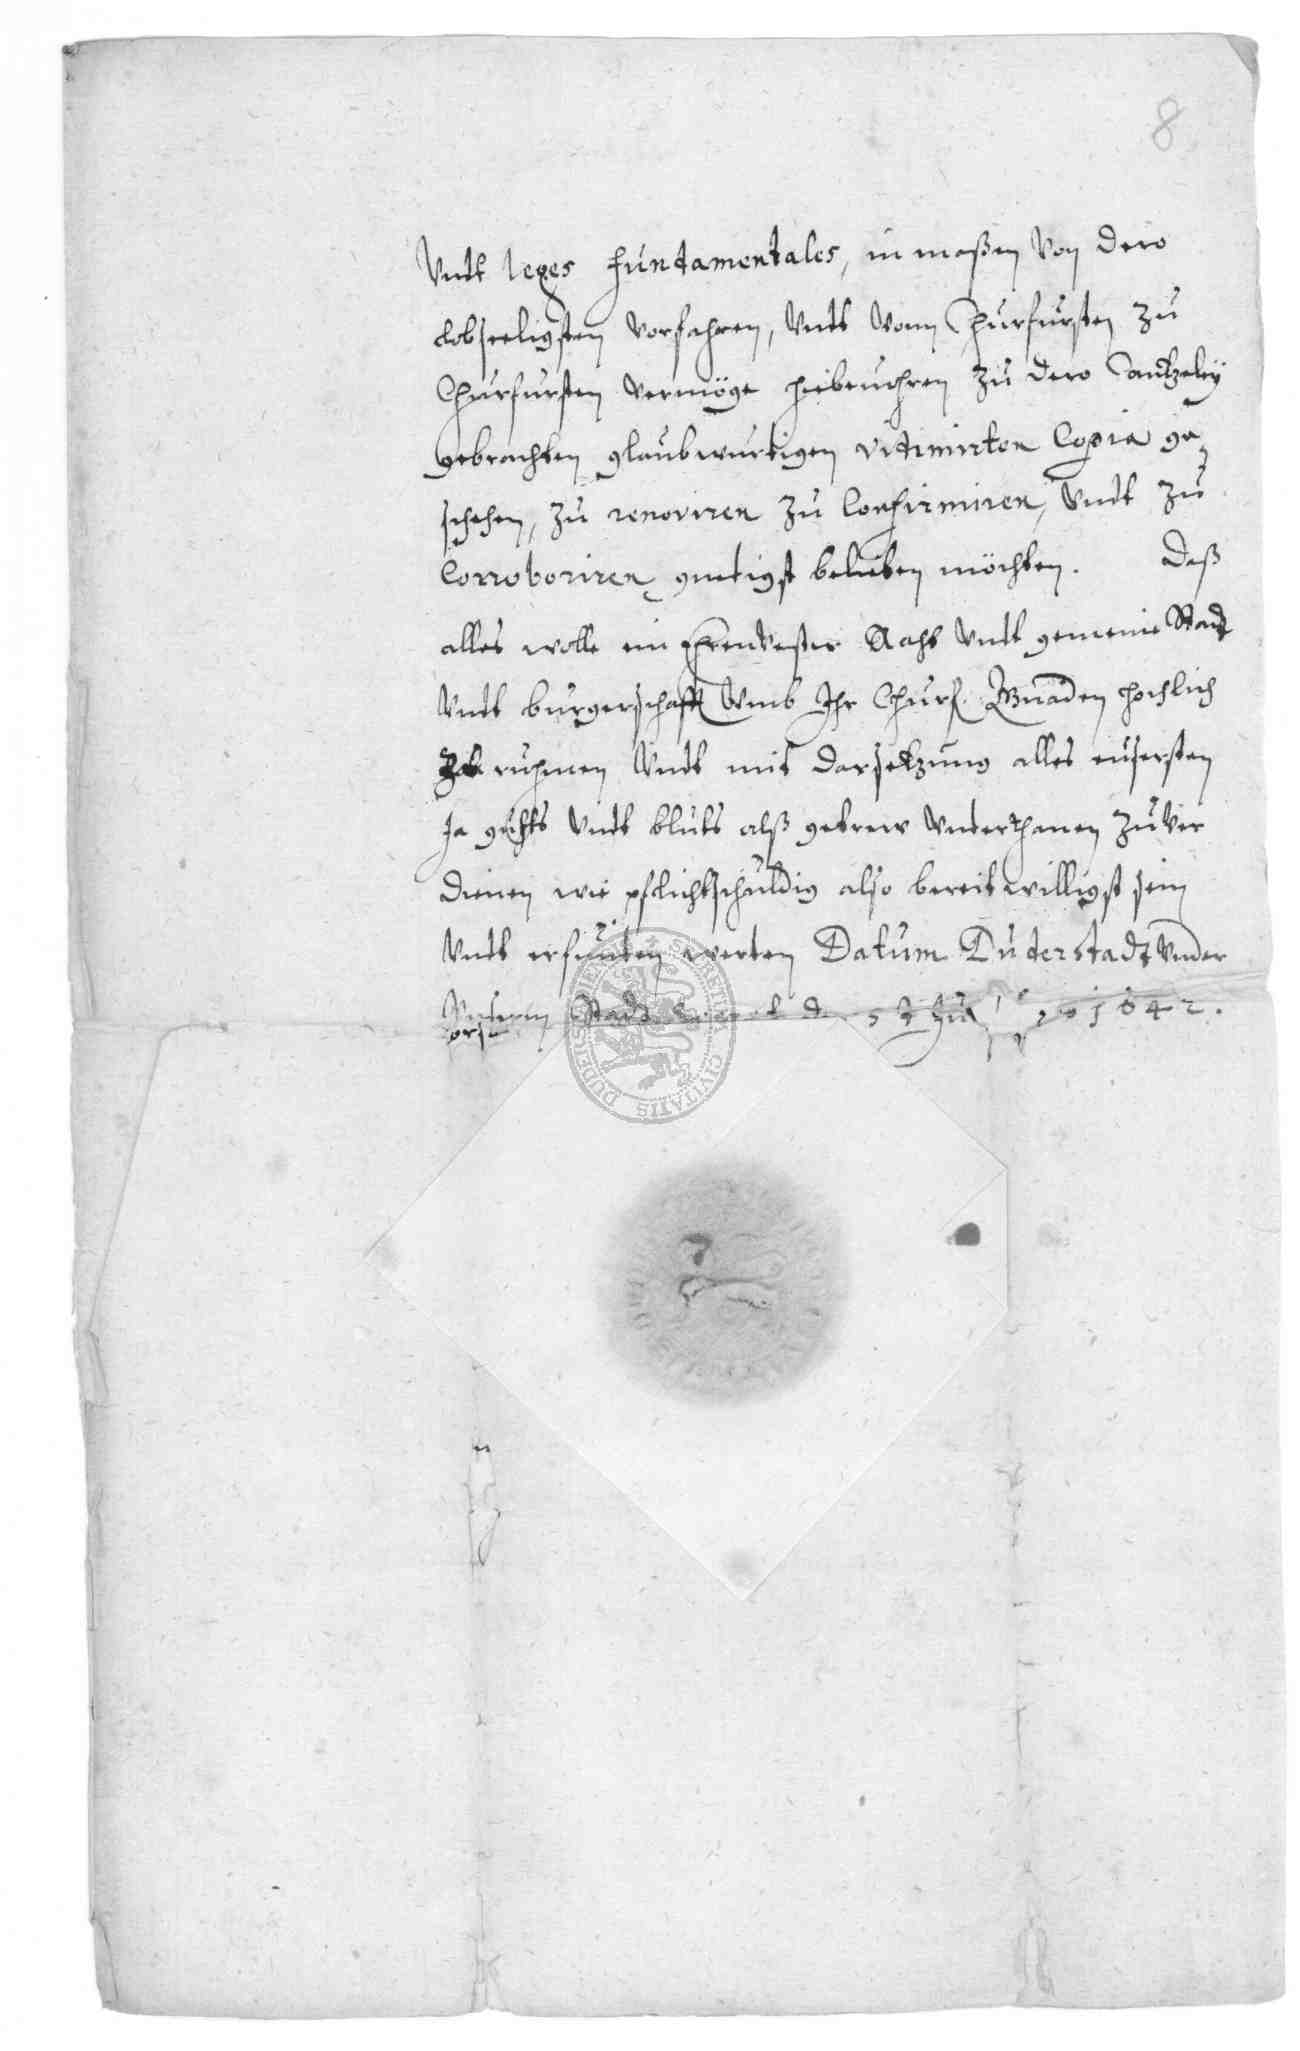 8
Vndt leges fundamentales, in maßen von dero
lobseeligsten vorfahren, vndt vom Churfursten zu
Churfursten vermöge hiebeuohren zu dero Cantzeley
gebrachten glaubwurtigen vitimirten Copia ge-
schehen, zu renoviren zu Confirmiren, vndt zu
Corroboriren gnedigst belieben möchten. Daß
alles wolle ein Ehrenvester Raht vndt gemeine Stadt
vndt burgerschafft vmb Ihr Churf. Gnaden hochlich
ruhmen vndt mit darsetzung alles eusersten
Ja guhts vndt bluts alß getrew vnterthanen zu ver
dienen wie pflichtschuldig also bereitwilligst sein
vndt erfunden werden Datum Duderstadt vnder
Stadt 1642.
SECRETUM CIVITATIS DUDERS